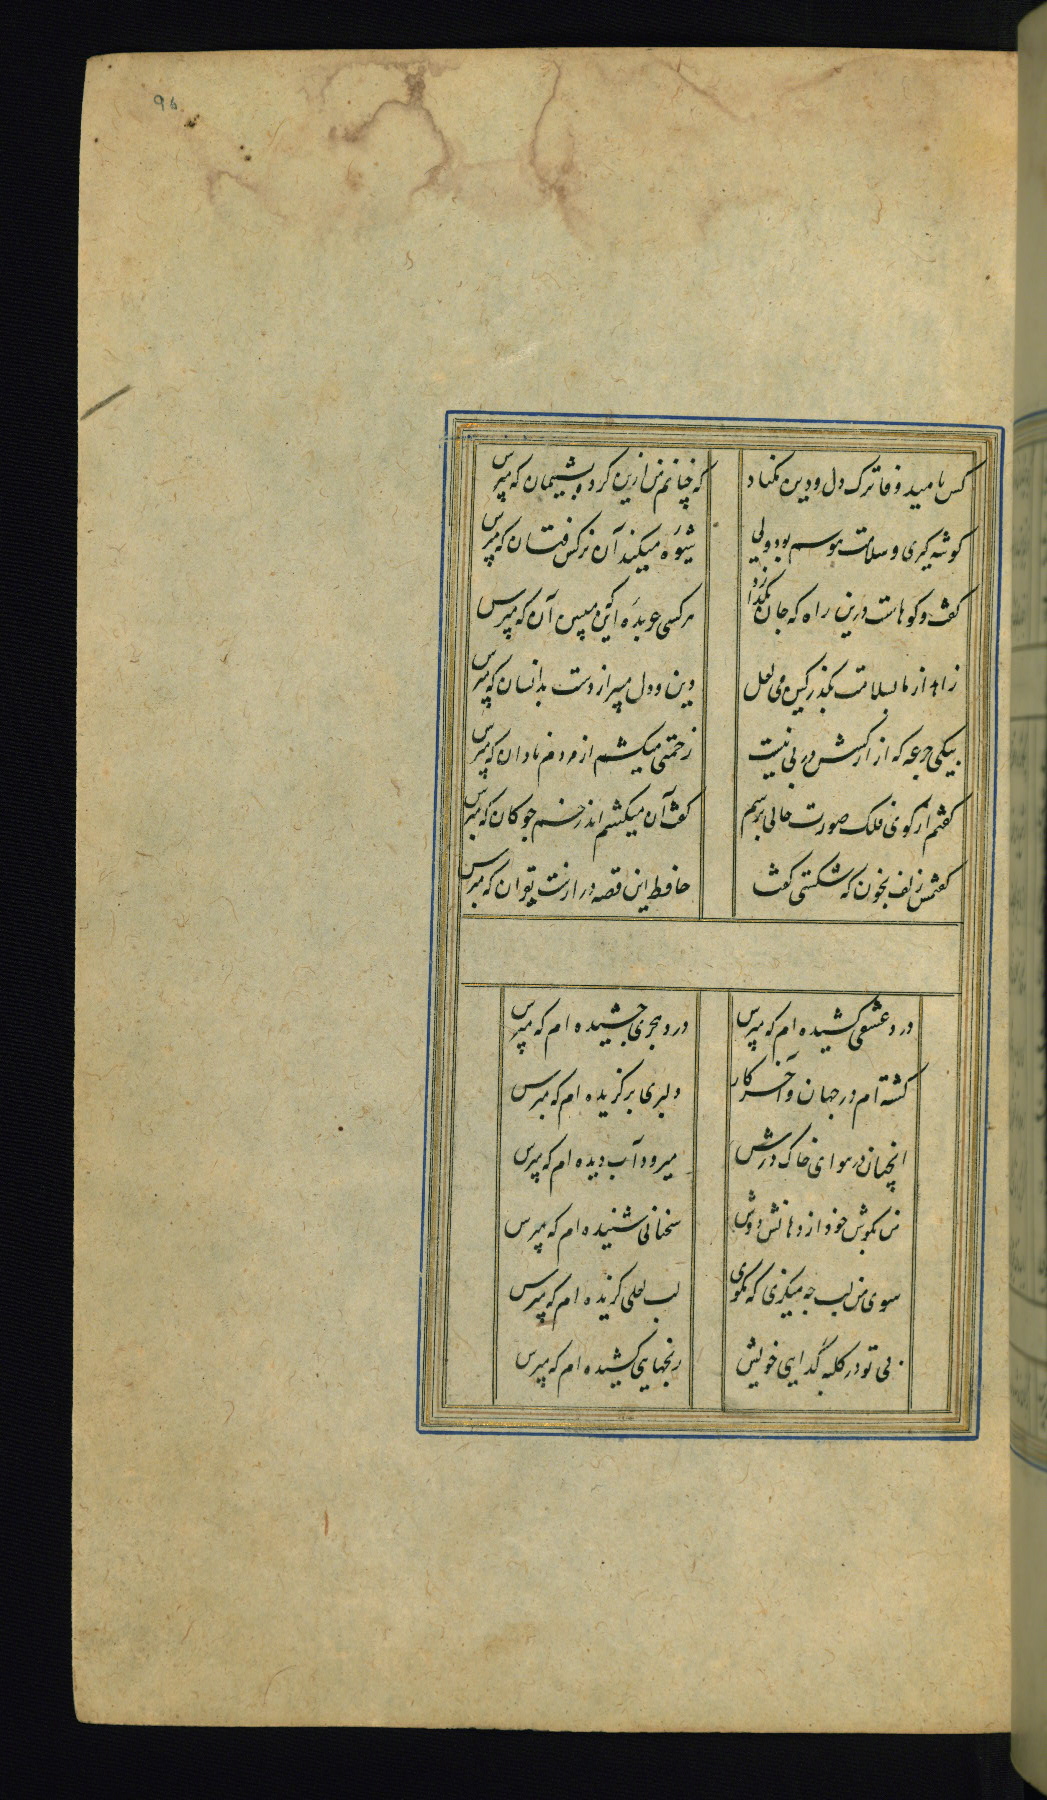 96
کس بامید وفا ترک دل و دین مکناد که چنانم من ازین کرده پشیمان که مپرس
کوشه کیری و سلامت هوسم بود ولی شیوه میکند آن نرکس فتان که مپرس
کفت و کوهاست درین راه که جان بکدازد هر کسی عربده این که مبین آن که مپرس
زاهد از ما بسلامت بکذر کین می لعل دین و دل میبرد از دست بدانسان که مپرس
بیکی جرعه که آزار کسش در پی نیست زحمتی میکشم از مردم نادان که مپرس
کفتم از کوی فلک صورت حالی پرسم کفت آن میکشم اندر خم چوکان که مپرس
کفتمش زلف بخون که شکستی کفتا حافظ این قصه درازست بقرآن که مپرس
درد عشقی کشیده ام که مپرس درد هجری چشیده ام که مپرس
کشته ام در جهان و آخر کار دلبری برکزیده ام که مپرس
انچنان در هوای خاک درش میرود آب دیده ام که مپرس
من بکوش خود از دهانش دوش سخنانی شنیده ام که مپرس
سوی من لب چه میکزی که مکوی لب لعلی کزیده ام که مپرس
بی تو در کلبه کدایی خویش رنجهایی کشیده ام که مپرس